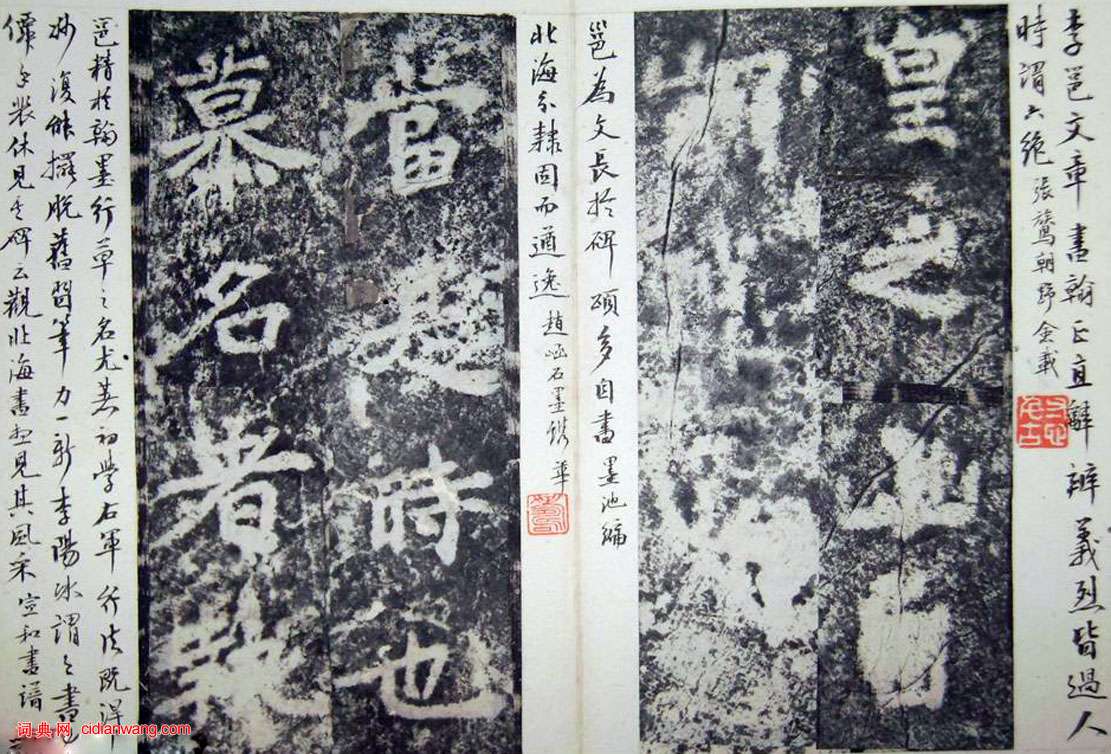 李邕文章書翰正直辭辯義烈皆過人
時謂六絕 張鷟朝野僉載
皇之
邕為文長於碑頌多自書 墨池編
北海分隸固而遒逸 趙崡石墨鐫華
當是時也
慕名者執
邕精於翰墨行草之名尤著初學右軍行法既得
妙復能擺脫舊習筆力一新李陽冰謂之書
僊手裴休見其碑云觀北海書想見其風采 宣和書譜
词典网 cidianwang.com